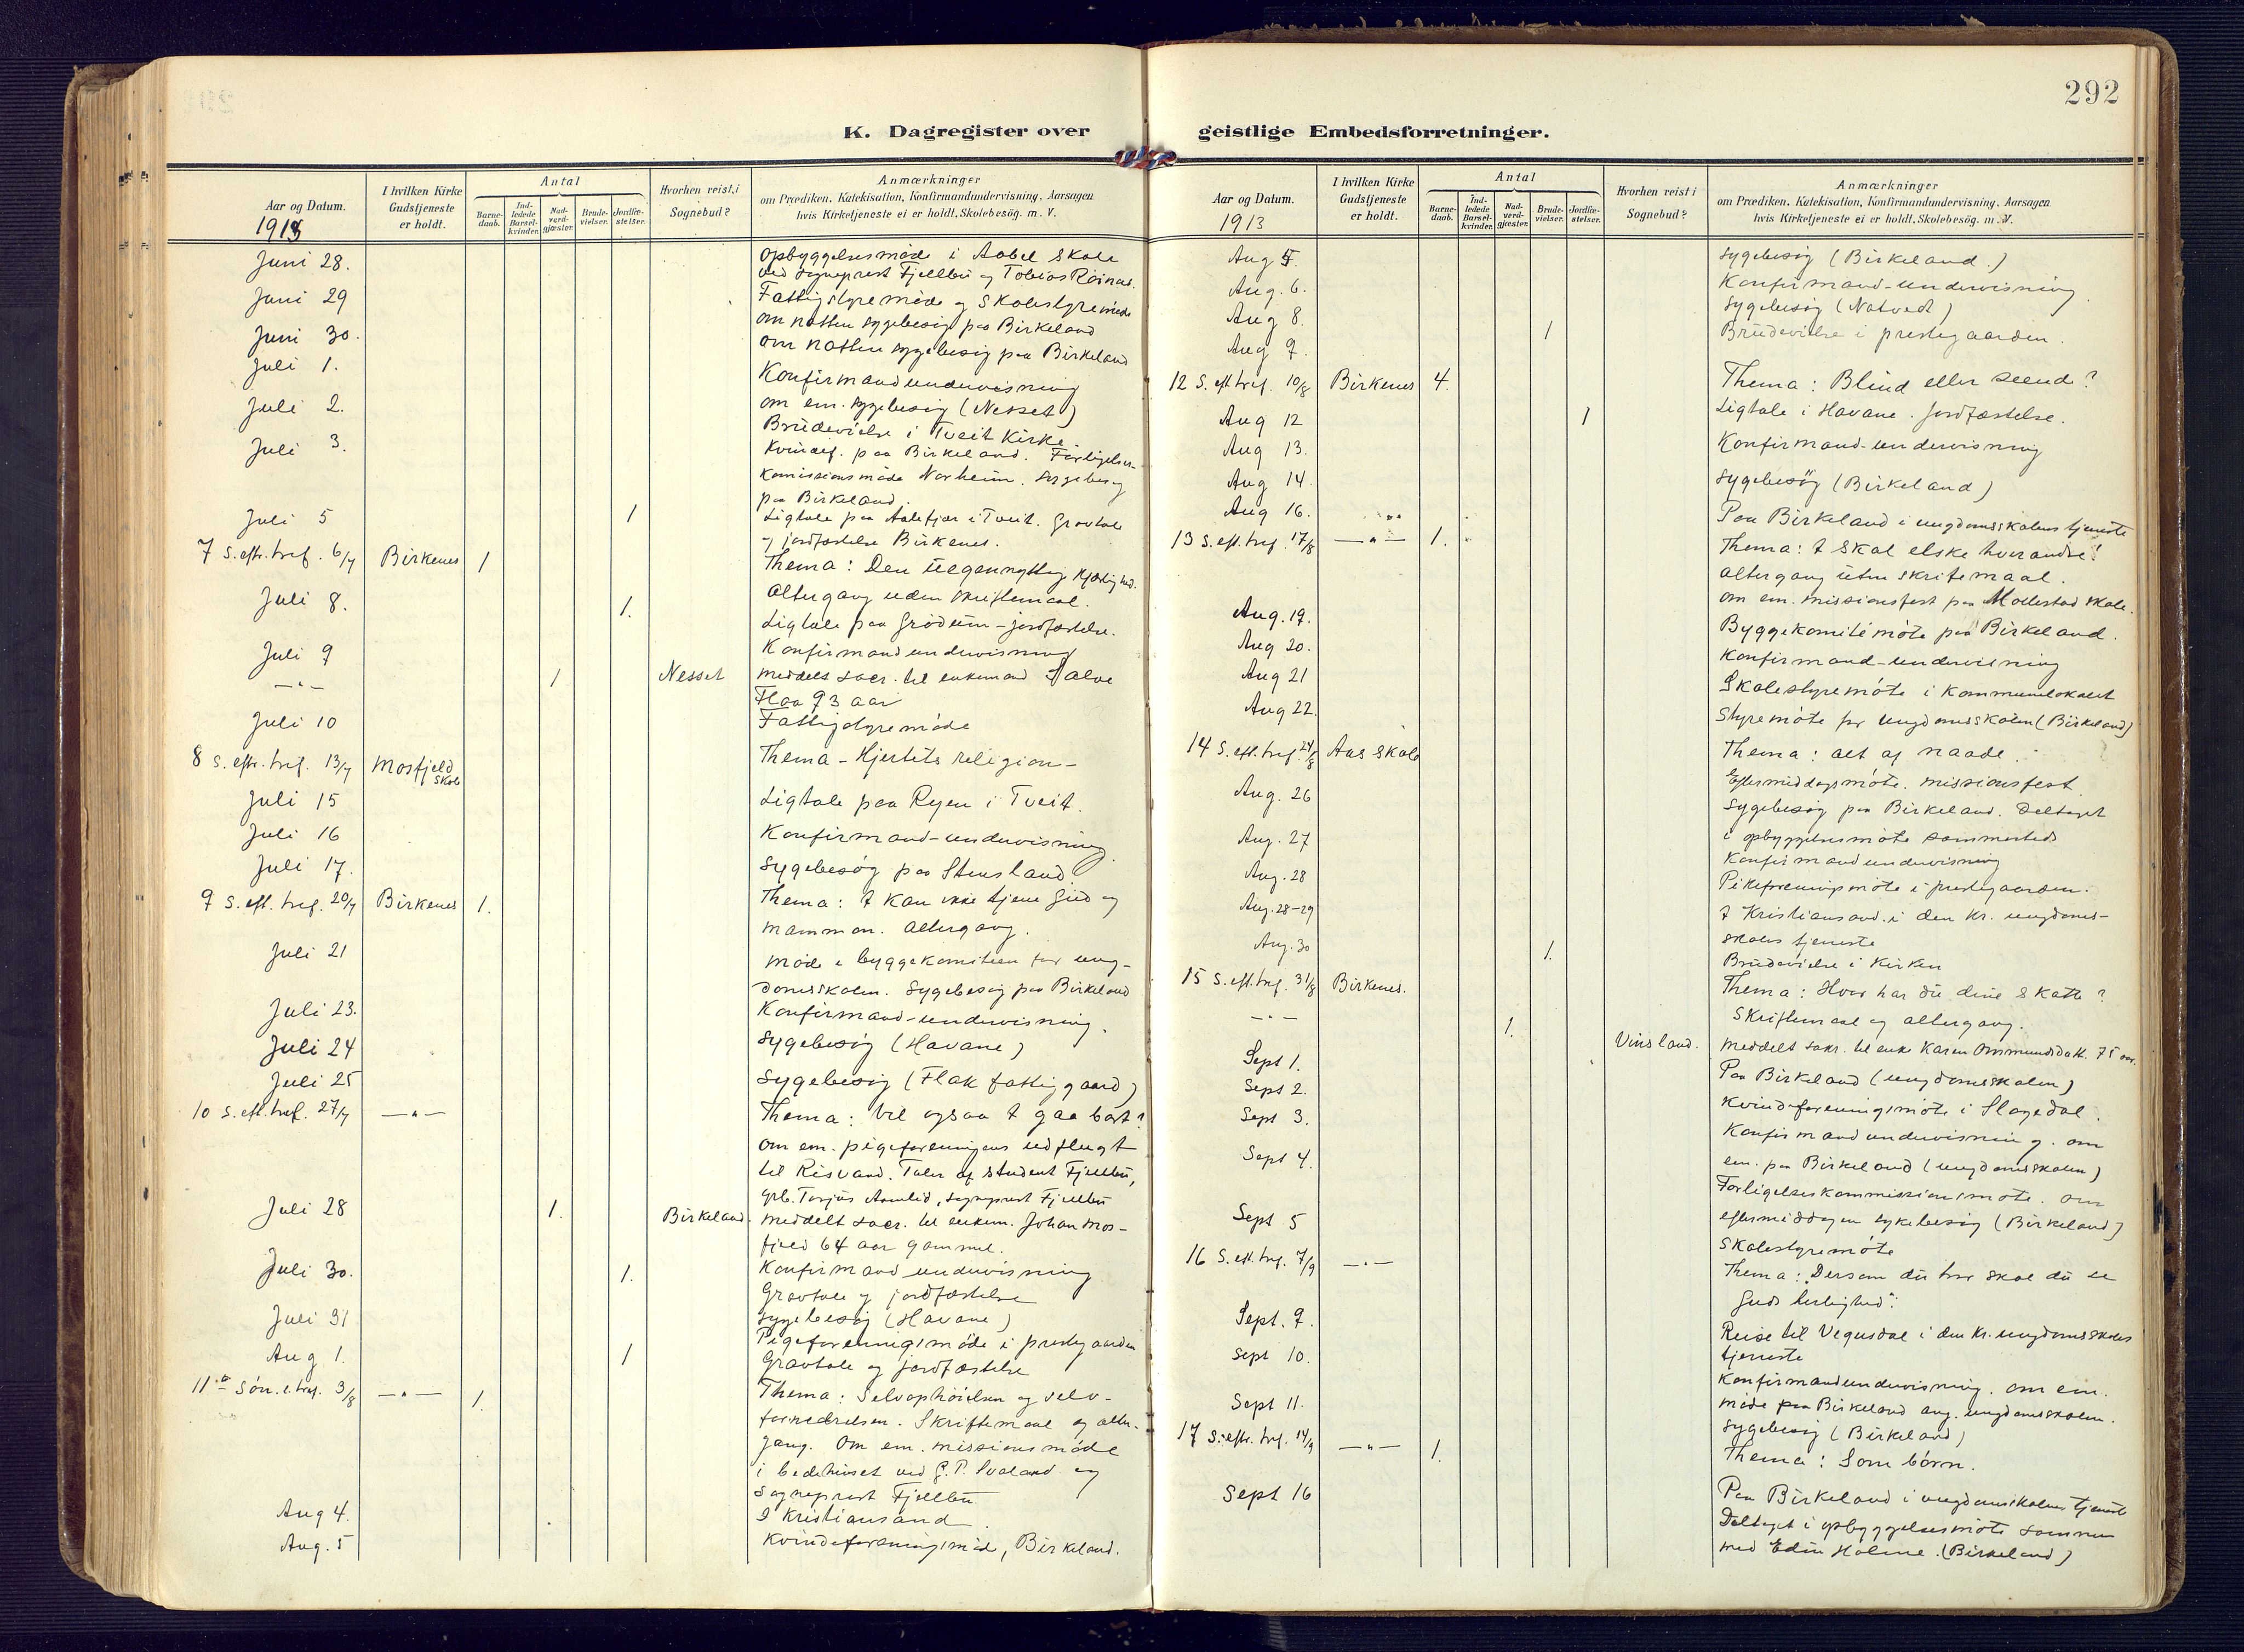 292
K. Dagregister over
geistlige Embedsforretninger.
Aar og Datum.
1913
I hvilken Kirke
Gudstjeneste
er holdt.
Antal
Barne-
daab.
Ind-
ledede
Barsel-
kvinder.
Nad-
verd-
gjæster.
Brude-
vielser.
Jordfæ-
stelser.
Hvorhen reist i
Sognebud?
Anmærkninger
om Prædiken, Katekisation, Konfirmandundervisning, Aarsagen
hvis Kirketjeneste ei er holdt, Skolebesög. m. V.
Juni 28. Opbyggelsesmøde i Aabel Skole
ved sogneprest Fjellbu og Tobias Roinas.
Juni 29 Fattigstyremøde og Skolestyremøde
Juni 30. om natten sygebesøg paa Birkeland
Juli 1. om natten sygebesøg paa Birkeland
Juli 2. Konfirmandundervisning
om em. sygebesøg (Nesset)
Juli 3. Brudevielse i Tveit Kirke
Kvindef. paa Birkeland. Forligelses-
Komissionsmøde Norheim. Sygebesøg
paa Birkeland.
Juli 5 1 Ligtale paa Aalefjær i Tveit. Gravtale
og jordfæstelse Birkenes.
7 S. eft. tref. 6/7 Birkenes 1 Thema: Den uegennyttige Kjærlighed.
Altergang uden skriftemaal.
Juli 8. 1. Ligtale paa Grødum - jordfæstelse.
Juli 9 Konfirmandundervisning
— " — 1 Nesset meddelt sacr. til enkemand Salve
Flaa 93 aar
Juli 10 Fattigstyremøde
8 S. eftr. tref. 13/7 Mosfjeld Skole Thema - Hjertets religion -
Juli 15 Ligtale paa Ryen i Tveit.
Juli 16 Konfirmand-undervisning.
Juli 17. Sygebesøg paa Stensland
9 S. eft. tref. 20/7 Birkenes 1. Thema: I kan ikke tjene Gud og
mammon. Altergang.
Juli 21 Møde i byggekomiteen for ung-
domsskolen. Sygebesøg paa Birkeland
Juli 23. Konfirmand-undervisning.
Juli 24 Sygebesøg (Havane)
Juli 25 Sygebesøg (Flak fattiggaard)
10 S. eft. tref. 27/7 — " — Thema: Vil ogsaa I gaa bort?
om em. pigeforeningens udflugt
til Risvand. Taler af student Fjellbu,
Grb. Torjus Aamlid, sogneprest Fjellbu
Juli 28 1. Birkeland. meddelt sacr. til enkem. Johan Mos-
fjeld 64 aar gammel.
Juli 30. 1. Konfirmand undervisning
Gravtale og jordfæstelse
Juli 31 Sygebesøg (Havane)
Pigeforeningsmøde i prestegaarden
Aug 1. 1 Gravtale og jordfæstelse
11te Søn. e. tref. 3/8 — " — 1. Thema: Selvophøielsen og selv-
fornedrelsen. Skriftemaal og alter-
gang. Om em. missionsmøde
i bedehuset ved G. P. Svaland og
sogneprest Fjellbu
Aug 4. I Kristiansand
Aug. 5 Kvindeforeningsmøde, Birkeland.
Aar og Datum.
1913
I hvilken Kirke
Gudstjeneste
er holdt.
Antal
Barne-
daab.
Ind-
ledede
Barsel-
kvinder.
Nad-
verd-
gjæster.
Brude-
vielser.
Jordfæ-
stelser.
Hvorhen reist i
Sognebud?
Anmærkninger
om Prædiken, Katekisation, Konfirmandundervisning, Aarsagen
hvis Kirketjeneste ei er holdt, Skolebesög. m. V.
Aug 5. Sygebesøg (Birkeland.)
Aug. 6. Konfirmand-undervisning.
Aug 8. Sygebesøg (Natvedt)
Aug 9. 1 Brudevielse i prestegaarden.
12 S. eft. tref. 10/8 Birkenes 4. Thema: Blind eller seende?
Aug 12 1 Ligtale i Havane. Jordfæstelse.
Aug 13. Konfirmand-undervisning
Aug 14. Sygebesøg (Birkeland)
Aug 16. Paa Birkeland i ungdomsskolens tjeneste
13 S. eft. tref. 17/8 — " — 1. Thema: I skal elske hverandre!
altergang uten skriftemaal.
om em. missionsfest paa Mollestad skole.
Aug. 19. Byggekomitémøte paa Birkeland.
Aug 20. Konfirmand-undervisning
Aug 21 Skolestyremøte i Kommunelokalet
Aug 22. Styremøte for ungdomsskolen (Birkeland)
14 S. eft. tref. 24/8 Aas skole Thema: alt af naade.
Eftermiddagsmøte. missionsfest.
Aug. 26 Sygebesøg paa Birkeland. Deltaget
i opbyggelsesmøte sammesteds
Aug. 27 Konfirmandundervisning
Aug. 28 Pikeforeningsmøte i prestegaarden.
Aug. 28-29 I Kristiansand. i den Kr. ungdoms-
skoles tjeneste
Aug. 30 1. Brudevielse i kirken
15 S. eft. tref. 31/8 Birkenes. Thema: Hvor har du dine skatte?
Skriftemaal og altergang.
— " — 1. Vinsland. meddelt sakr. til enke Karen Ommundsdatt. 75 aar.
Sept 1. Paa Birkeland (ungdomsskolen)
Sept 2. Kvindeforeningsmøte i Slagedal.
Sept 3. Konfirmandundervisning. om
em. paa Birkeland (ungdomsskolen)
Sept 4. Forligelseskommissionsmøte. om
eftermiddagen sykebesøg (Birkeland)
Sept 5 Skolestyremøte
16 S. eft. tref. 7/9 — " — Thema: "Dersom du tror skal du se
Guds herlighed".
Sept. 9. Reise til Vegusdal i den Kr. ungdomsskoles
tjeneste
Sept 10. Konfirmandundervisning. om em.
møde paa Birkeland ang. ungdomsskolen.
Sept 11. Sygebesøg (Birkeland)
17 S. eftr. tref. 14/9 — " — 1. Thema: Som børn.
Sept 16 Paa Birkeland i ungdomsskolens tjeneste
Deltaget i opbyggelsesmøte sammen
med Edin Holme. (Birkeland)